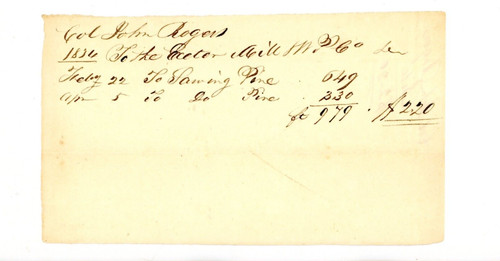 Col John Rogers
1834 To the Exeter Mill & W. P. Co Dr
Feby 22 To Sawing Pine . 649
Apr 5 To Do Pine 330
ft 979 . $2.20